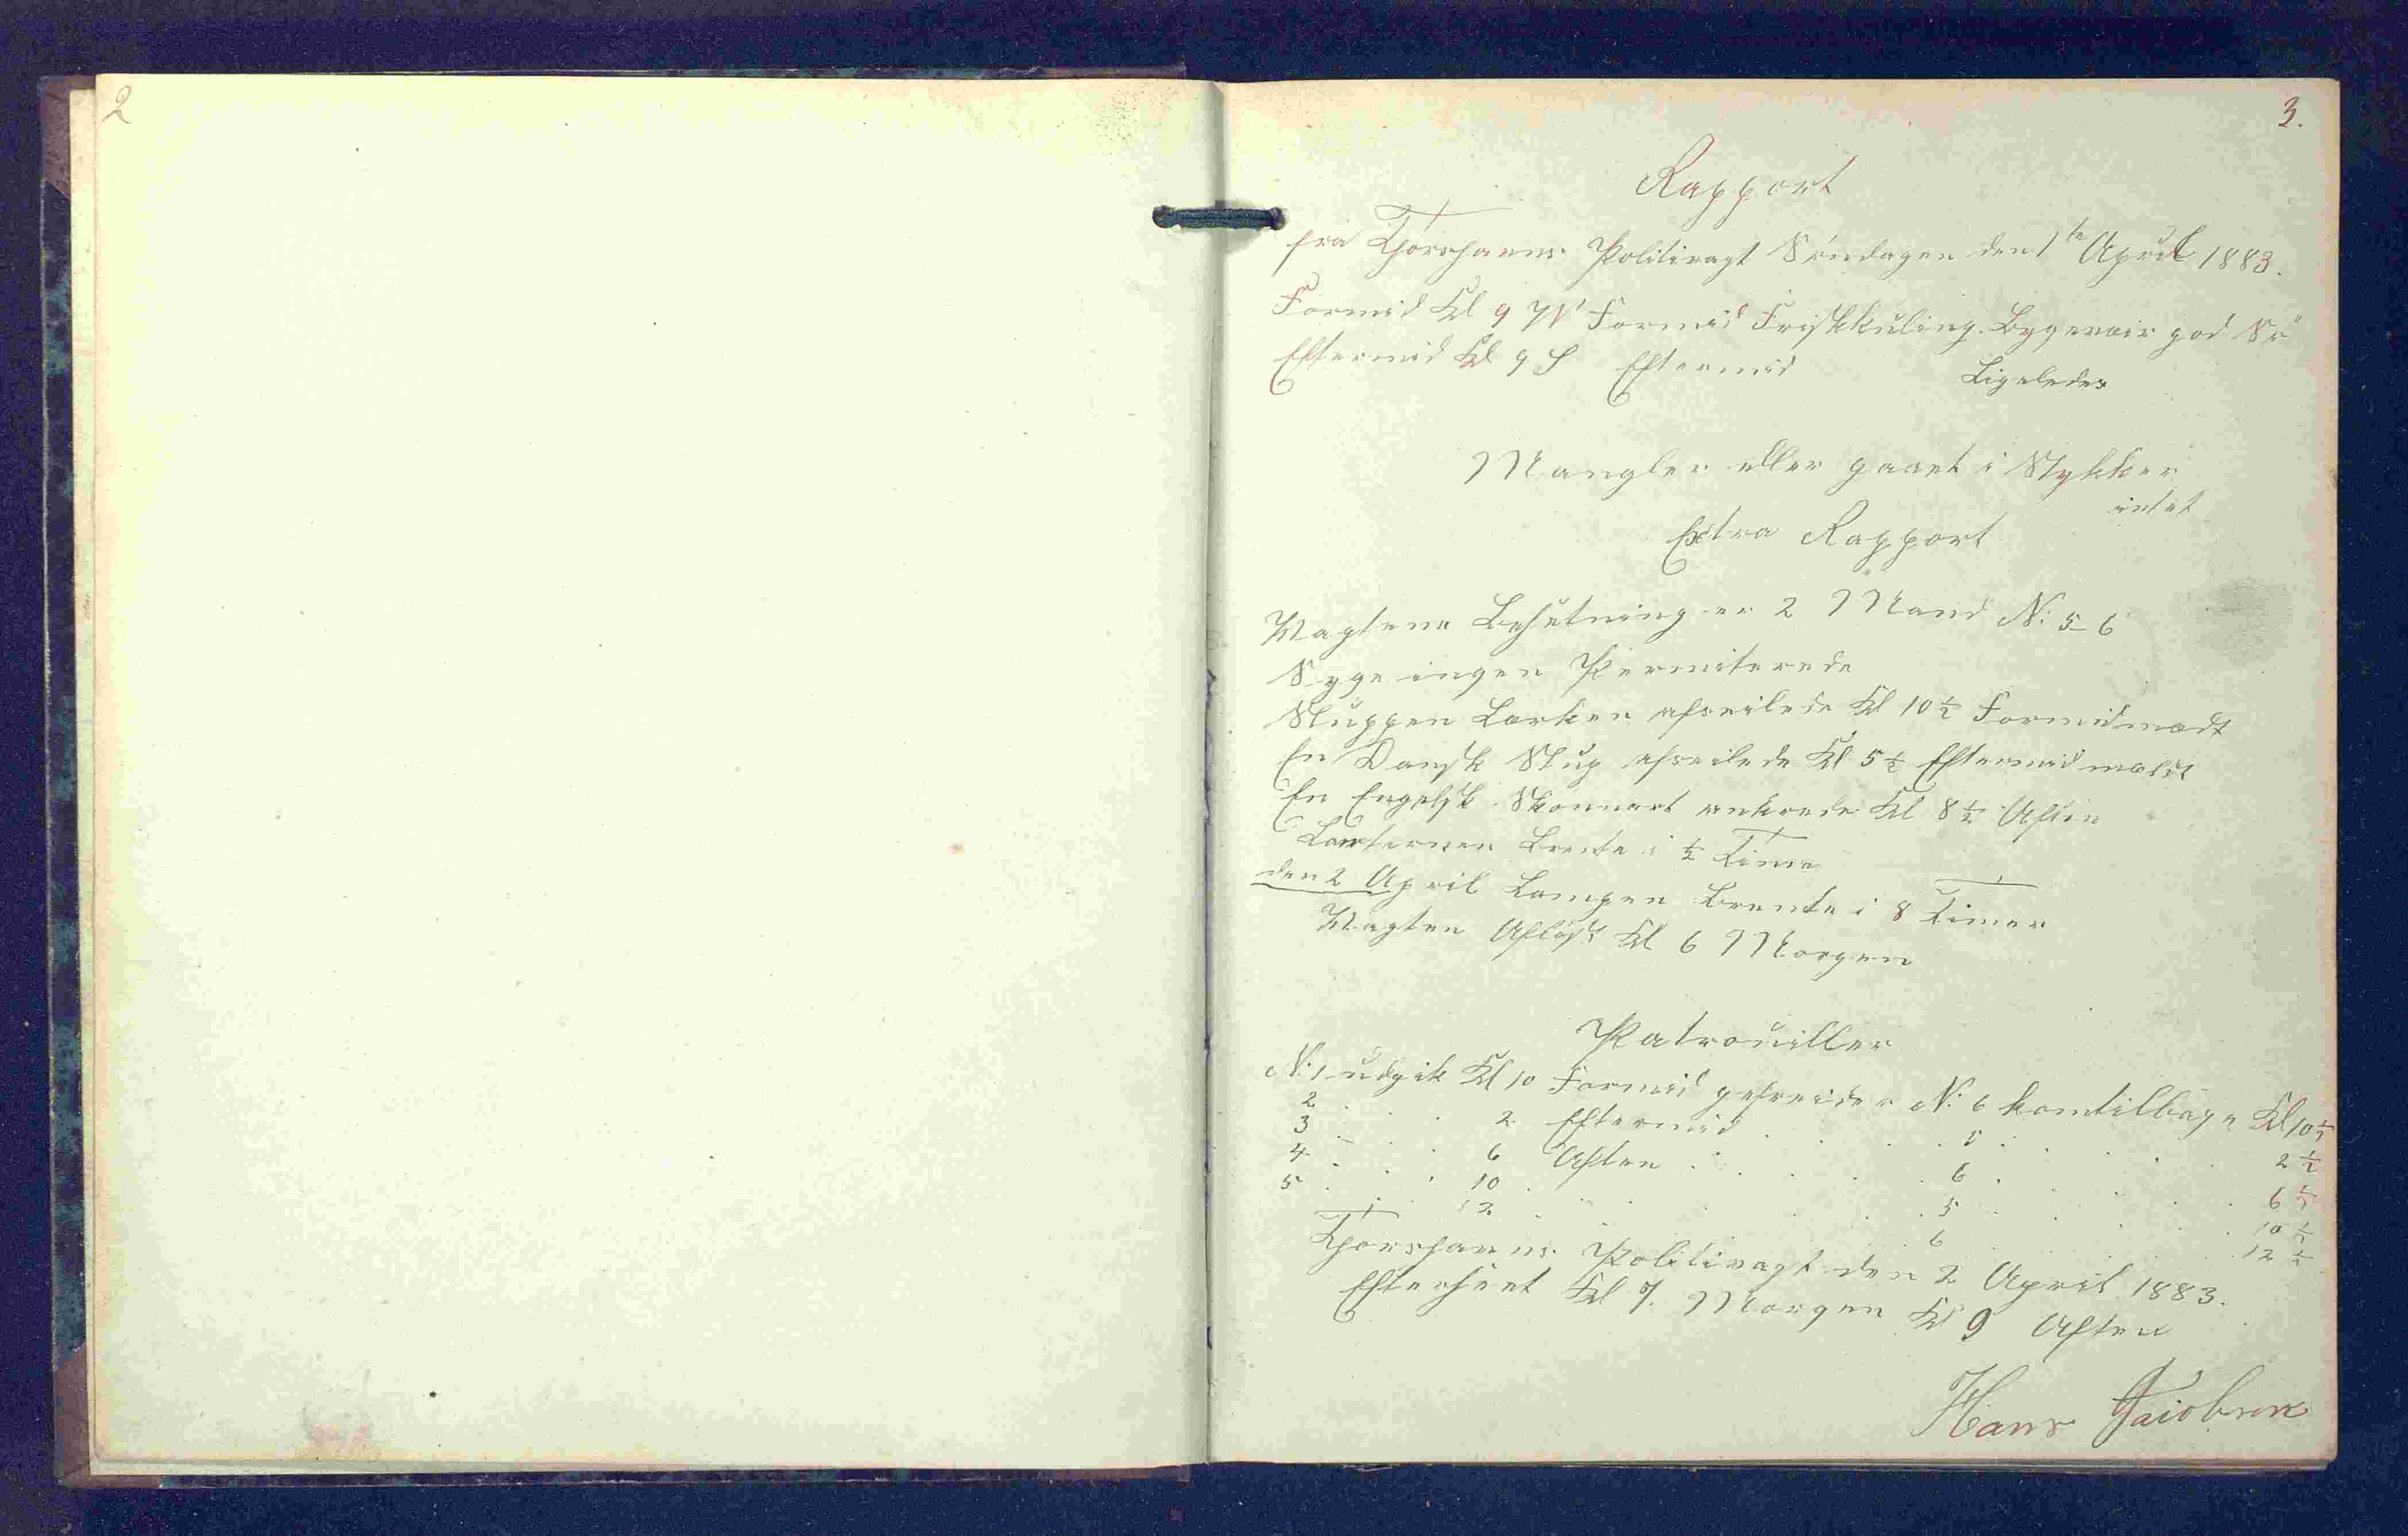 2
3.
Rapport
fra Thorshavns Politivagt Søndagen den 1te April 1883.
Formid Kl 9 W Formid Friskkuling. Bygevair god Sø
Eftermid Kl 9 S Eftermid Ligeledes
Mangler eller gaaet i Stykker
intet
Extra Rapport
Vagtens Besetning er 2 Mand N: 5-6
Syge ingen Permiterede
Sluppen Lærken afseilede Kl 10½ Formidmadt
En Dansk Slup afseilede Kl 5½ Eftermid
En Engelsk Skonnart ankrede Kl 8½ Aften
Lanternen Brente i ½ Time
den 2 April Lampen Brente i 8 Timer
Vagten Afløst Kl 6 Morgen
Patrouiller
N: 1 udgik Kl 10 Formid gefreider N: 6 komtilbage Kl 10½
2 . . . 2 Eftermid . . . 5 . . . 2½
3 . . . 6 Aften . . . 6 . . . 6½
4 . . . 10 . . . 5 . . . 10½
5 . . . 12 . . . 6 . . . 12½
Thorshavns Politivagt den 2 April 1883.
Efterseet Kl 7. Morgen Kl 9 Aften
Hans Jaiobsen